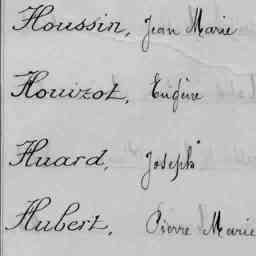 Houssin, Jean Marie
Houizot, Eugène
Huard, Joseph
Hubert, Pierre Marie